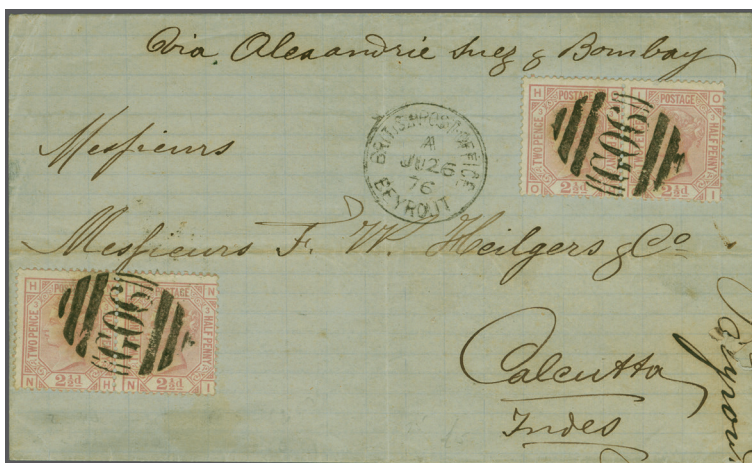 Via Alexandrie Suez & Bombay
Messieurs
BRITISH POST-OFFICE
A
JU 26
76
BEYROUT
H I O
POSTAGE
TWO PENCE HALF PENNY
G06
O 2½d 2½d I
Messieurs F. W. Heilgers & Co
H N
POSTAGE POSTAGE
TWO PENCE 3 3 HALF PENNY
G06
N 2½d H N 2½d I
Calcutta
Indes